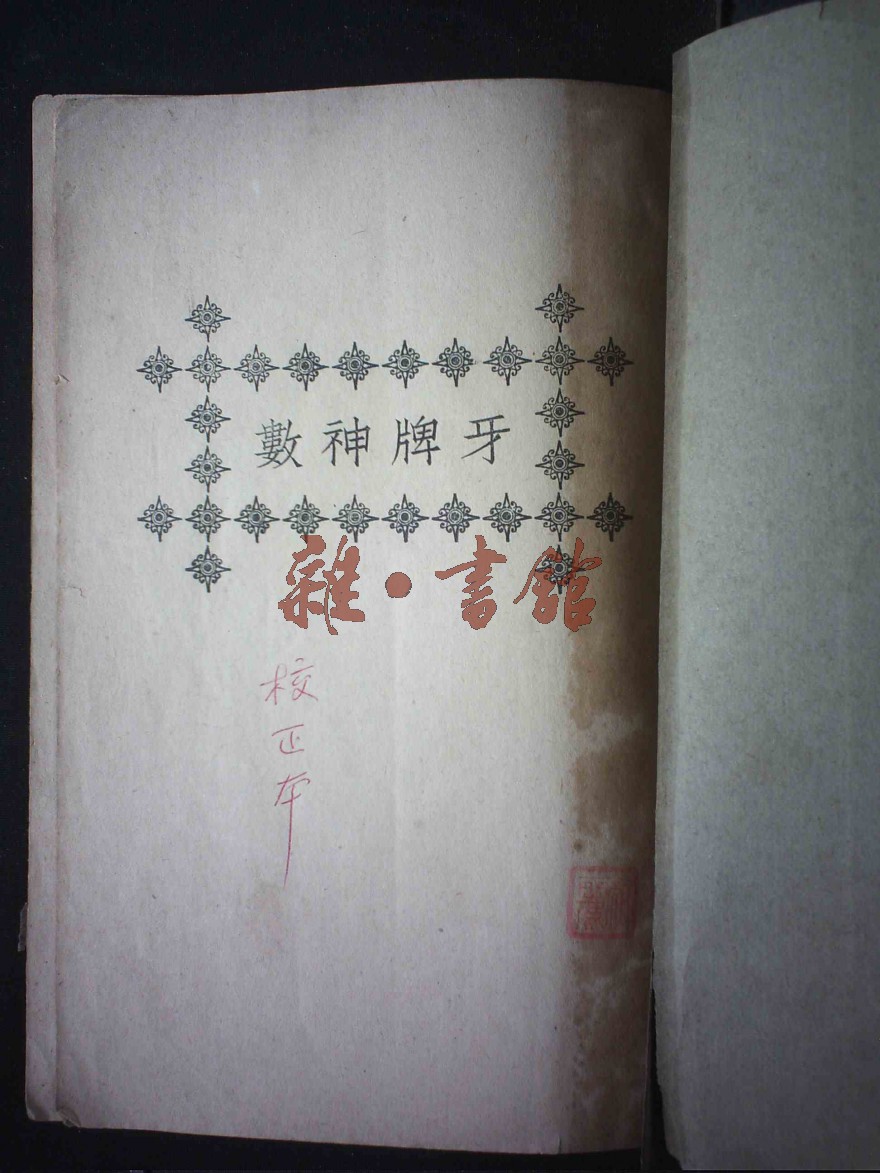 牙牌神數
雜·書館
校正本